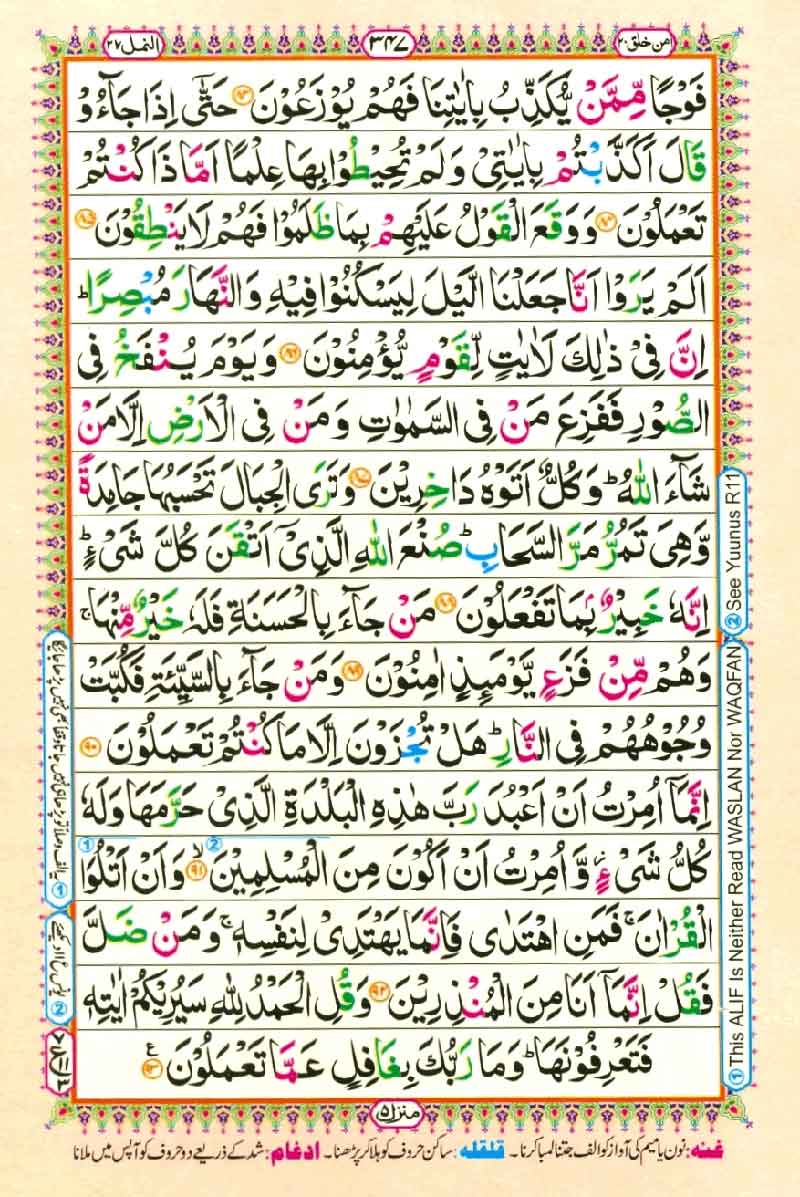 النمل ۲۷
۳۴۷
امن خلق ۲۰
فَوْجًا مِّمَّنْ يُّكَذِّبُ بِاٰيٰتِنَا فَهُمْ يُوْزَعُوْنَ ۝۸۳ حَتّٰۤى اِذَا جَآءُوْ
قَالَ اَكَذَّبْتُمْ بِاٰيٰتِيْ وَلَمْ تُحِيْطُوْا بِهَا عِلْمًا اَمَّا ذَا كُنْتُمْ
تَعْمَلُوْنَ ۝۸۴ وَوَقَعَ الْقَوْلُ عَلَيْهِمْ بِمَا ظَلَمُوْا فَهُمْ لَا يَنْطِقُوْنَ ۝۸۵
اَلَمْ يَرَوْا اَنَّا جَعَلْنَا الَّيْلَ لِيَسْكُنُوْا فِيْهِ وَالنَّهَارَ مُبْصِرًا ؕ
اِنَّ فِيْ ذٰلِكَ لَاٰيٰتٍ لِّقَوْمٍ يُّؤْمِنُوْنَ ۝۸۶ وَيَوْمَ يُنْفَخُ فِي
الصُّوْرِ فَفَزِعَ مَنْ فِي السَّمٰوٰتِ وَمَنْ فِي الْاَرْضِ اِلَّا مَنْ
شَآءَ اللّٰهُ ؕ وَكُلٌّ اَتَوْهُ دَاخِرِيْنَ ۝۸۷ وَتَرَى الْجِبَالَ تَحْسَبُهَا جَامِدَةً
وَّهِيَ تَمُرُّ مَرَّ السَّحَابِ ؕ صُنْعَ اللّٰهِ الَّذِيْۤ اَتْقَنَ كُلَّ شَيْءٍ ؕ
اِنَّهٗ خَبِيْرٌۢ بِمَا تَفْعَلُوْنَ ۝۸۸ مَنْ جَآءَ بِالْحَسَنَةِ فَلَهٗ خَيْرٌ مِّنْهَا ۚ
وَهُمْ مِّنْ فَزَعٍ يَّوْمَىِٕذٍ اٰمِنُوْنَ ۝۸۹ وَمَنْ جَآءَ بِالسَّيِّئَةِ فَكُبَّتْ
وُجُوْهُهُمْ فِي النَّارِ ؕ هَلْ تُجْزَوْنَ اِلَّا مَا كُنْتُمْ تَعْمَلُوْنَ ۝۹۰
اِنَّمَاۤ اُمِرْتُ اَنْ اَعْبُدَ رَبَّ هٰذِهِ الْبَلْدَةِ الَّذِيْ حَرَّمَهَا وَلَهٗ
كُلُّ شَيْءٍ ؗ وَّاُمِرْتُ اَنْ اَكُوْنَ مِنَ الْمُسْلِمِيْنَ ۙ۝۹۱ وَاَنْ اَتْلُوَا
الْقُرْاٰنَ ۚ فَمَنِ اهْتَدٰى فَاِنَّمَا يَهْتَدِيْ لِنَفْسِهٖ ۚ وَمَنْ ضَلَّ
فَقُلْ اِنَّمَاۤ اَنَا مِنَ الْمُنْذِرِيْنَ ۝۹۲ وَقُلِ الْحَمْدُ لِلّٰهِ سَيُرِيْكُمْ اٰيٰتِهٖ
فَتَعْرِفُوْنَهَا ؕ وَمَا رَبُّكَ بِغَافِلٍ عَمَّا تَعْمَلُوْنَ ۝۹۳ ع
① This ALIF Is Neither Read WASLAN Nor WAQFAN ② See Yuunus R11
منزل ۵
غنہ: نون یا میم کی آواز کو الف جتنا لمبا کرنا۔ قلقلہ: ساکن حروف کو ہلا کر پڑھنا۔ ادغام: شد کے ذریعے دو حروف کو آپس میں ملانا